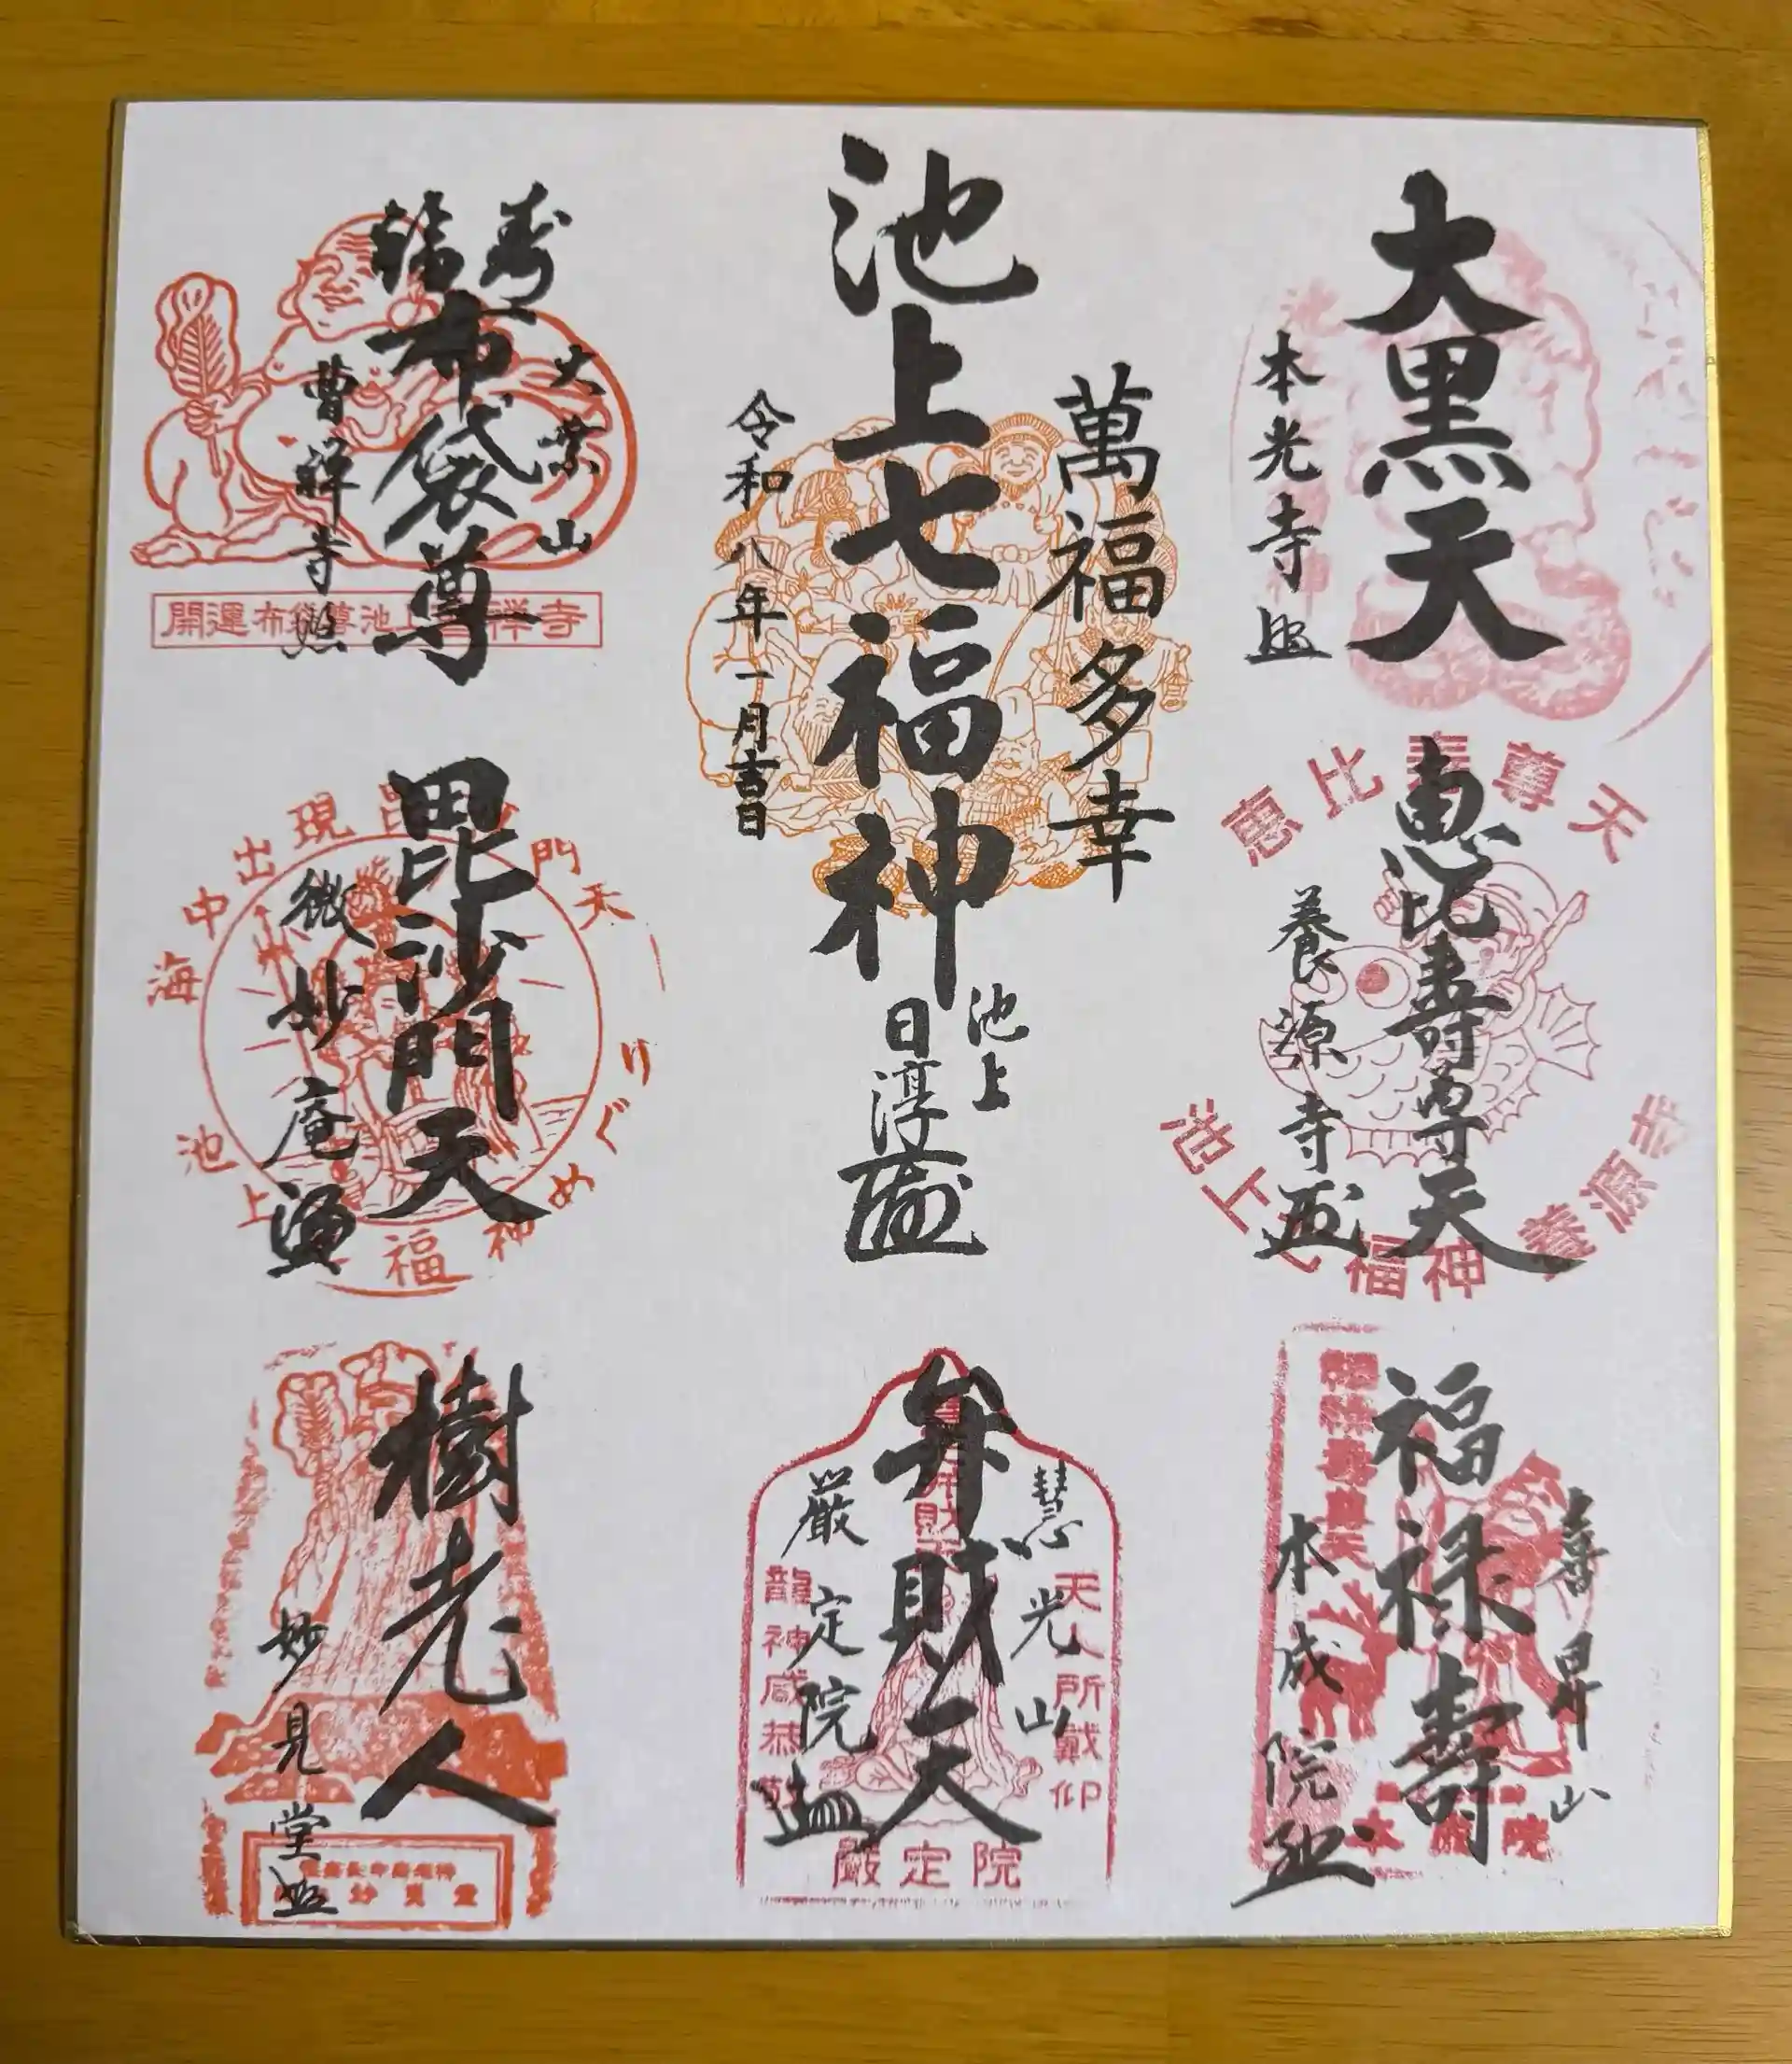 大黒天
本光寺
恵比寿尊天
恵比寿尊天
養源寺
池上七福神 養源寺
喜昇山
福禄寿
本成院
萬福多幸
池上七福神
令和八年一月吉日
池上
日淳
慧光山
弁財天
厳定院
天人所戴仰
龍神咸恭敬
嚴定院
寿
福
大黒山
布袋尊
曹禅寺
開運布袋尊池上曹禅寺
毘沙門天
微妙庵
海中出現毘沙門天
池上七福神めぐり
樹老人
妙見堂